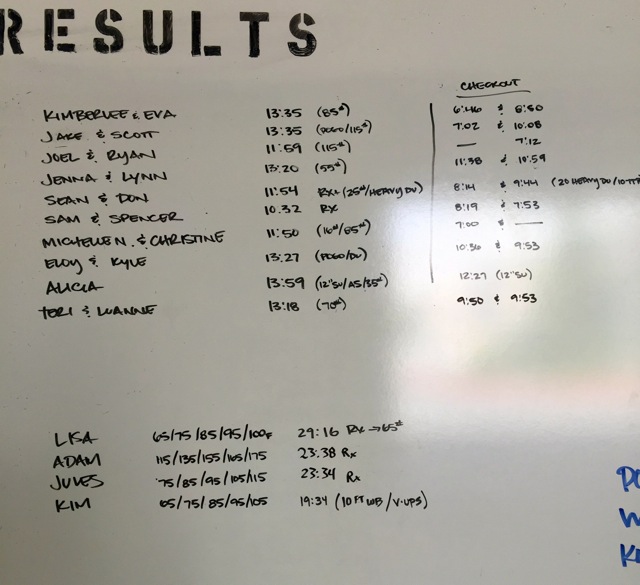 RESULTS
CHECKOUT
KIMBERLEE & EVA 13:35 (85#) 6:46 & 6:50
JAKE & SCOTT 13:35 (POGO/115#) 7:02 & 10:08
JOEL & RYAN 11:59 (115#) — 7:12
JENNA & LYNN 13:20 (55#) 11:38 & 10:59
SEAN & DON 11:54 RX+ (25#/HEAVY DU) 8:14 & 9:44 (20 HEAVY DU/10 TT
SAM & SPENCER 10:32 RX 8:19 & 7:53
MICHELLE N. & CHRISTINE 11:50 (16#/65#) 7:00 & —
ELOY & KYLE 13:27 (POGO/DU) 10:36 & 9:53
ALICIA 13:59 (12"SU/AS/35#) 12:27 (12"SU)
TERI & LUANNE 13:18 (70#) 9:50 & 9:53
LISA 65/75/85/95/100F 29:16 RX → 65#
ADAM 115/135/155/165/175 23:38 RX
JULES 75/85/95/105/115 23:34 RX
KIM 65/75/85/95/105 19:34 (10 FT WB/V-UPS)